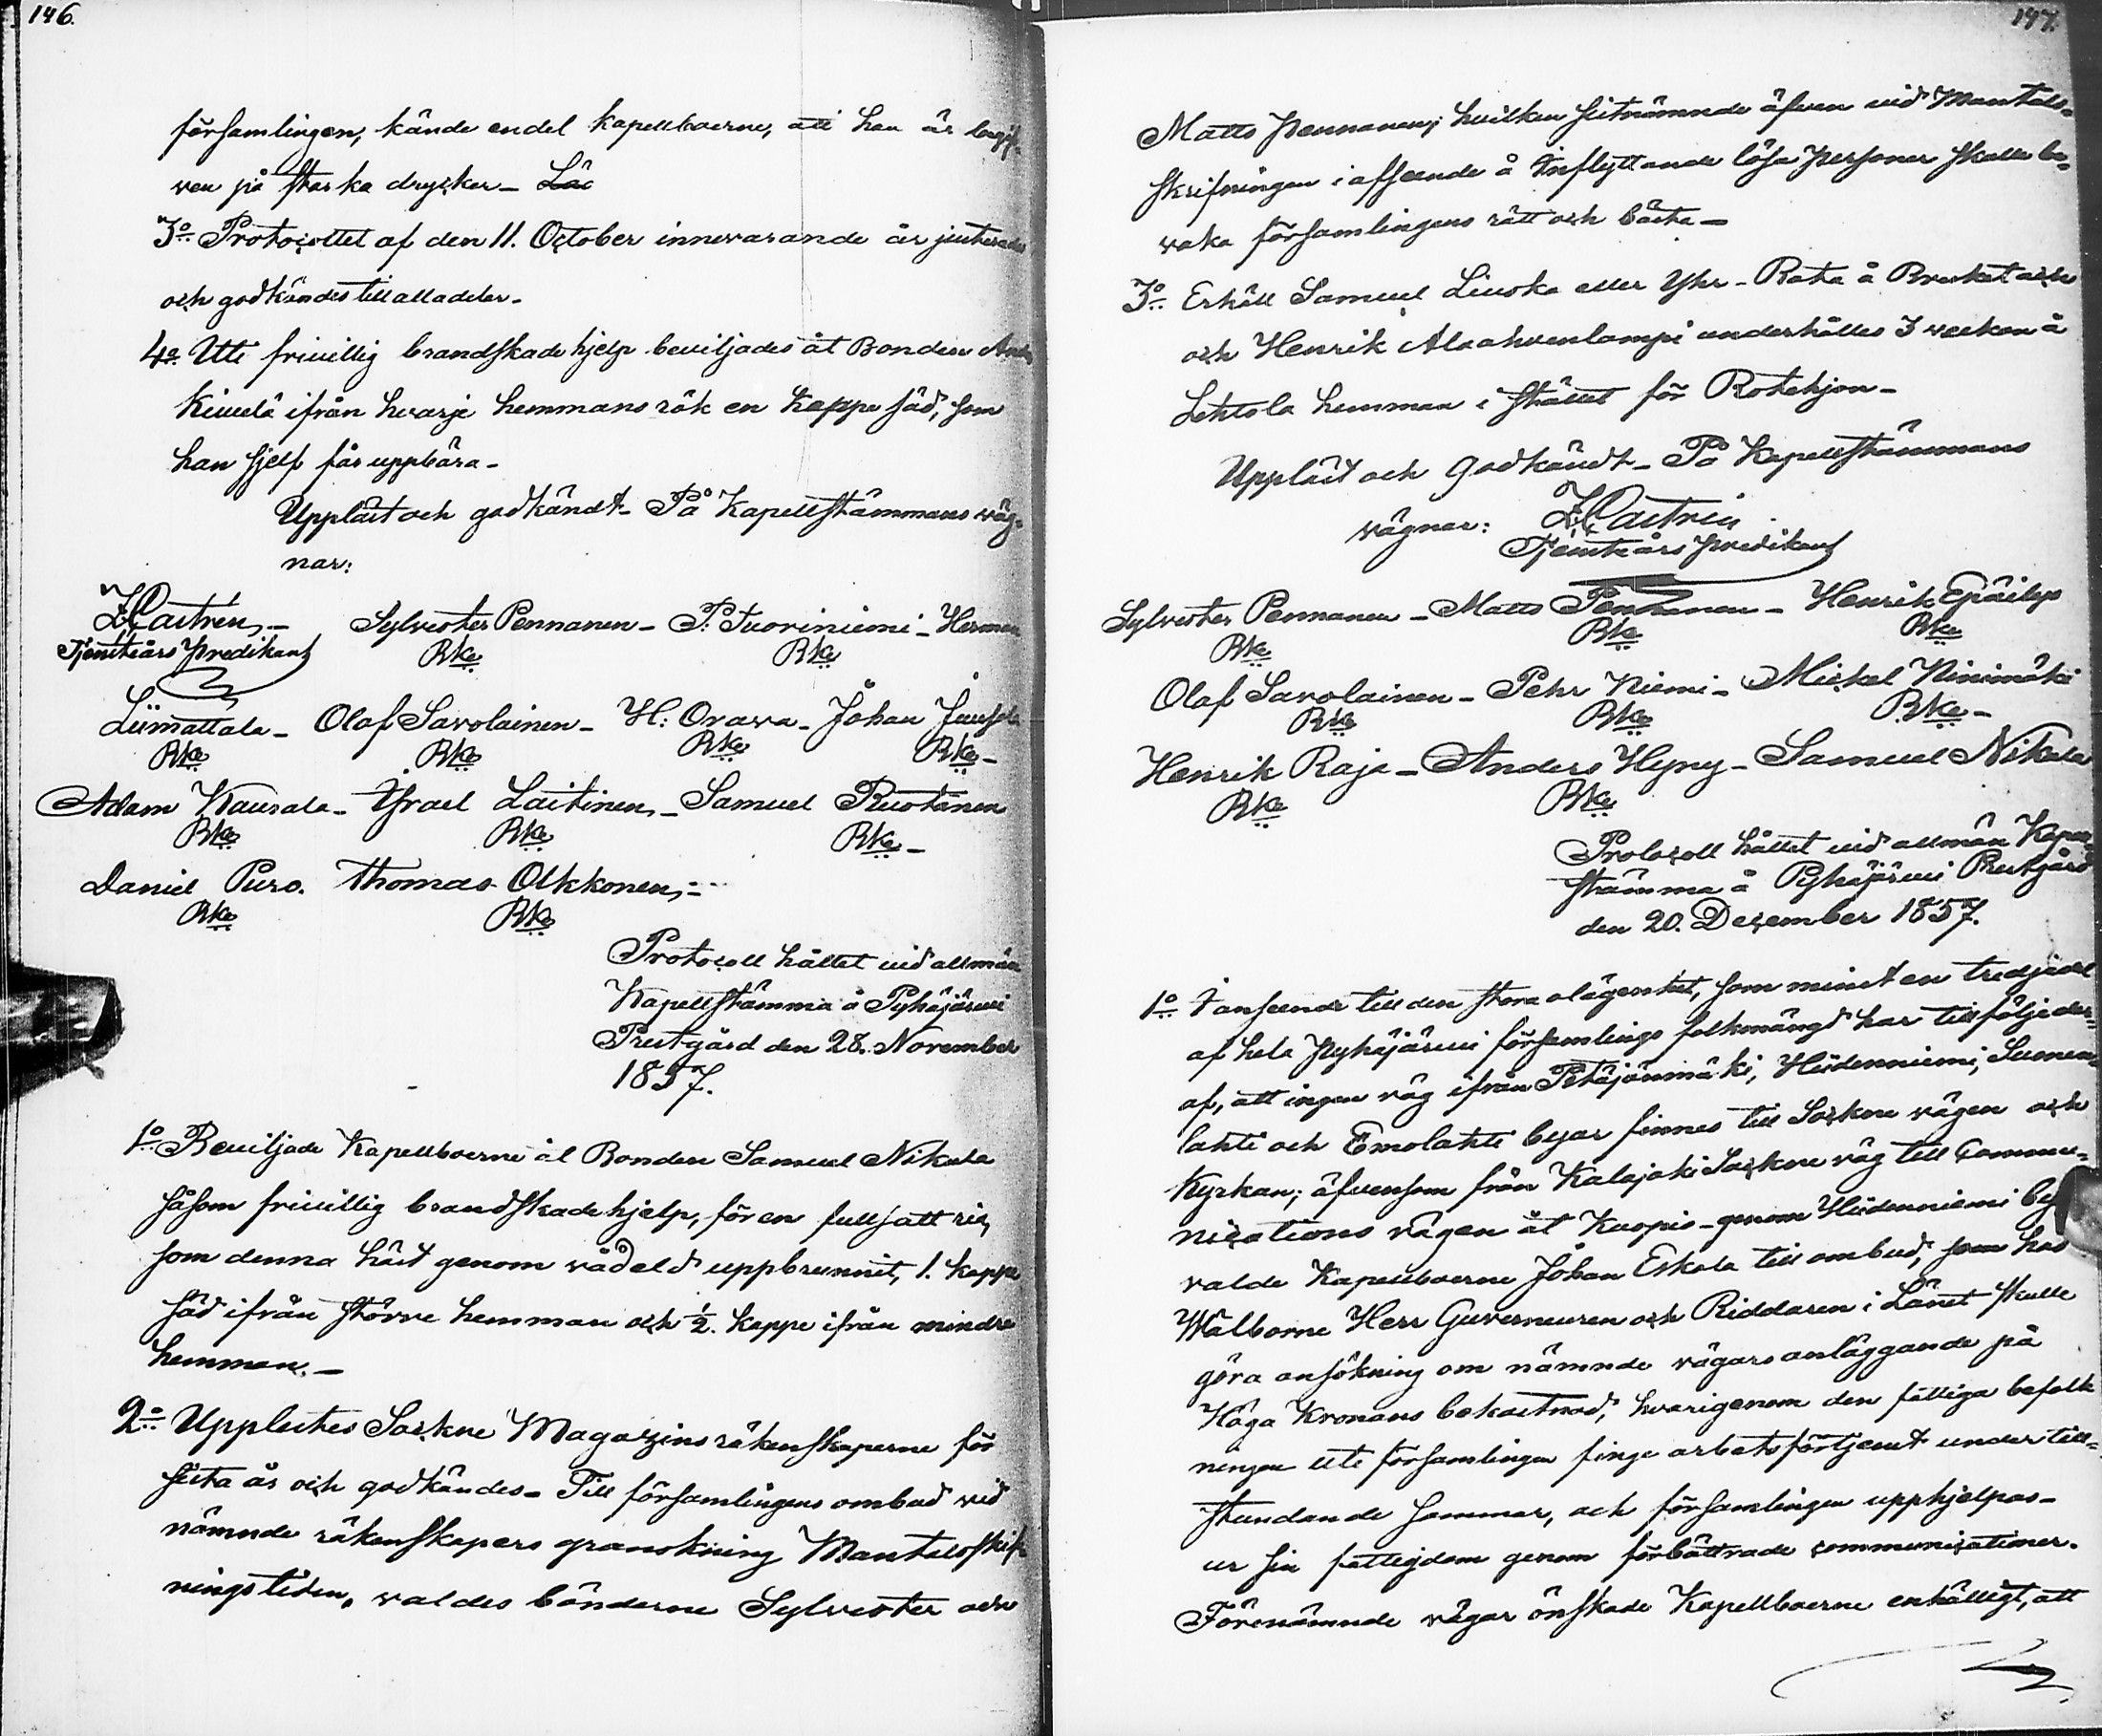 146.
församlingen, kände endel kapellboerne, att han är begif-
ven på starka drycker_ Läc
3o Protocollet af den 11. October innevarande år justerades
och godkändes till alla delar_
4o Uti frivillig brandskadehjelp beviljades åt Bonden And.
Kiuulä ifrån hvarje hemmans rök en kappe säd, som
han sjelf får uppbära_
Uppläst och godkändt_ På Kapellstämmans väg-
nar:
Z Castrén_ Sylvester Pennanen_ P: Tuoriniemi_ Herman
Tjenstårs predikant Bke Bke
Liimattala_ Olof Savolainen_ H: Orava_ Johan Jussila
Bke Bke Bke Bke_
Adam Kausala_ Ysrael Laitinen_ Samuel Ruotanen
Bke Bke Bke_
Daniel Puro. Thomas Olkkonen,
Bke Bke
Protocoll hållet vid allmän
Kapellstämma å Pyhäjärvi
Prestgård den 28. November
1857.
1o Beviljade Kapellboerne åt Bonden Samuel Nikula
såsom frivillig brandskadehjelp, för en fullsatt ria,
som denna höst genom vådeld uppbrunnit, 1. kappe
säd ifrån större hemman och ½. kappe ifrån mindre
hemman._
2o Upplästes Sockne Magazins räkenskaperne för
sista år och godkändes_ Till församlingens ombud vid
nämnde räkenskapers granskning Mantalsskrif-
ningstiden, valdes bönderne Sylvester och
147.
Matts Pennanen; hvilken sistnämnde äfven vid Mantals-
skrifningen i afseende å inflyttande lösa personer skulle be-
vaka församlingens rätt och bästa_
3o Erhöll Samuel Liuska eller Yhr_ Rata å Bruket och
och Henrik Alaahvenlampi underhålles 3 veckor å
Lehtola hemman i stället för Rotehjon_
Uppläst och Godkändt_ På Kapellstämmans
vägnar: Z Castrén
Tjenstårs predikant
Sylvester Pennanen_ Matts Pennanen_ Henrik Epäilys
Bke Bke Bke
Olof Savolainen_ Pehr Niemi_ Mickel Niinimäki
Bke Bke Bke_
Henrik Raja_ Anders Hyny_ Samuel Nikula
Bke Bke
Protocoll hållet vid allmän Kapell-
stämma å Pyhäjärvi Prestgård
den 20. December 1857.
1o I anseende till den stora olägenhet, som minst en tredjedel
af hela Pyhäjärvi församlings folkmängd har till följe der-
af, att ingen väg ifrån Petäjänmäki, Hiidenniemi, Suomen-
lahti och Emolahti byar finnes till Sockne vägen och
Kyrkan; äfvensom från Kalajoki Sockne väg till Commu-
nications vägen åt Kuopio_ genom Hiidenniemi by
valde Kapellboerne Johan Eskola till ombud, som hos
Wälborne Herr Guverneuren och Riddaren i Länet skulle
göra ansökning om nämnde vägars anläggande på
Höga Kronans bekostnad, hvarigenom den fattiga befolk
ningen uti församlingen finge arbetsförtjenst under till-
stundande sommar, och församlingen upphjelpas_
ur sin fattigdom genom förbättrade communicationer.
Förenämnde vägar önskade Kapellboerne enhälligt, att